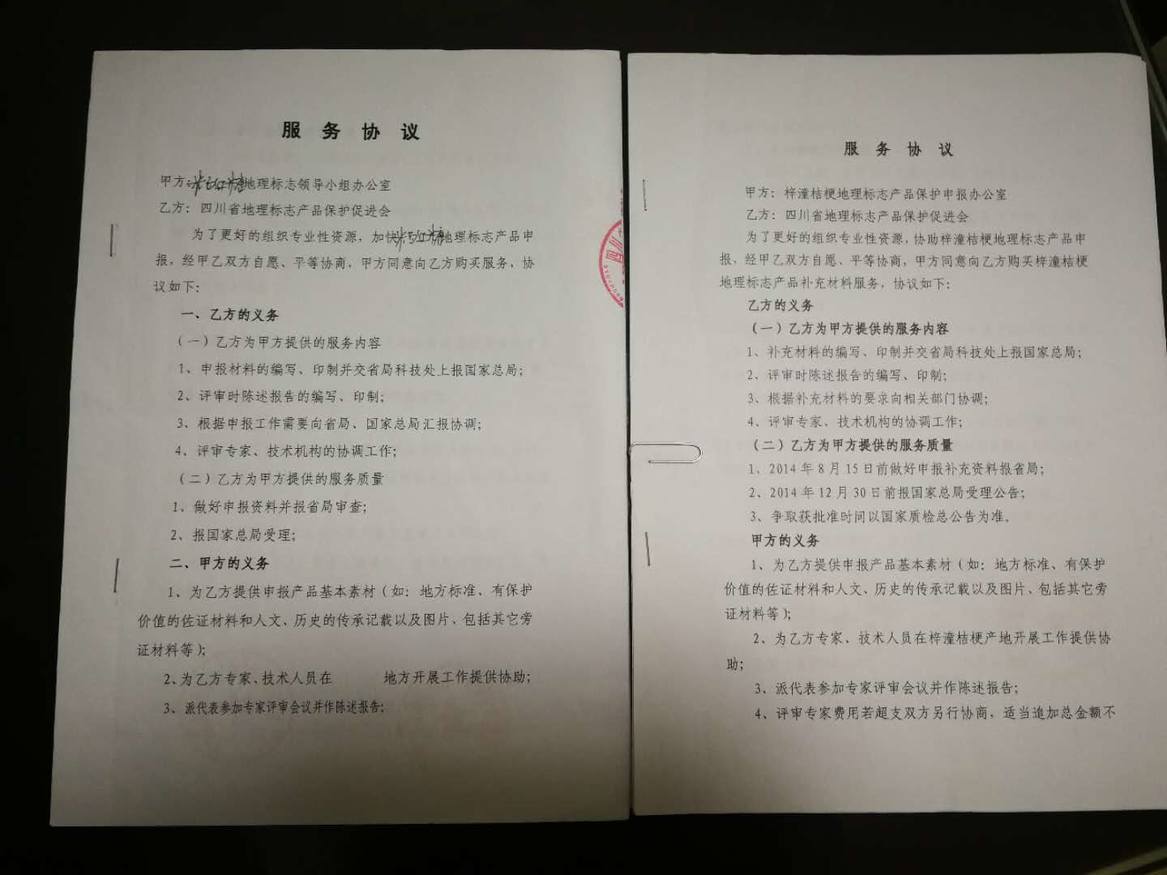 服务协议
甲方:地理标志领导小组办公室
乙方:四川省地理标志产品保护促进会
为了更好的组织专业性资源,加快地理标志产品申
报,经甲乙双方自愿、平等协商,甲方同意向乙方购买服务,协
议如下:
一、乙方的义务
(一)乙方为甲方提供的服务内容
1、申报材料的编写、印制并交省局科技处上报国家总局;
2、评审时陈述报告的编写、印制;
3、根据申报工作需要向省局、国家总局汇报协调;
4、评审专家、技术机构的协调工作;
(二)乙方为甲方提供的服务质量
1、做好申报资料并报省局审查;
2、报国家总局受理;
二、甲方的义务
1、为乙方提供申报产品基本素材(如:地方标准、有保护
价值的佐证材料和人文、历史的传承记载以及图片、包括其它旁
证材料等);
2、为乙方专家、技术人员在 地方开展工作提供协助;
3、派代表参加专家评审会议并作陈述报告;
四川
服务协议
甲方:梓潼桔梗地理标志产品保护申报办公室
乙方:四川省地理标志产品保护促进会
为了更好的组织专业性资源,协助梓潼桔梗地理标志产品申
报,经甲乙双方自愿、平等协商,甲方同意向乙方购买梓潼桔梗
地理标志产品补充材料服务,协议如下:
乙方的义务
(一)乙方为甲方提供的服务内容
1、补充材料的编写、印制并交省局科技处上报国家总局;
2、评审时陈述报告的编写、印制;
3、根据补充材料的要求向相关部门协调;
4、评审专家、技术机构的协调工作;
(二)乙方为甲方提供的服务质量
1、2014年8月15日前做好申报补充资料报省局;
2、2014年12月30日前报国家总局受理公告;
3、争取获批准时间以国家质检总公告为准。
甲方的义务
1、为乙方提供申报产品基本素材(如:地方标准、有保护
价值的佐证材料和人文、历史的传承记载以及图片、包括其它旁
证材料等);
2、为乙方专家、技术人员在梓潼桔梗产地开展工作提供协
助;
3、派代表参加专家评审会议并作陈述报告;
4、评审专家费用若超支双方另行协商,适当追加总金额不